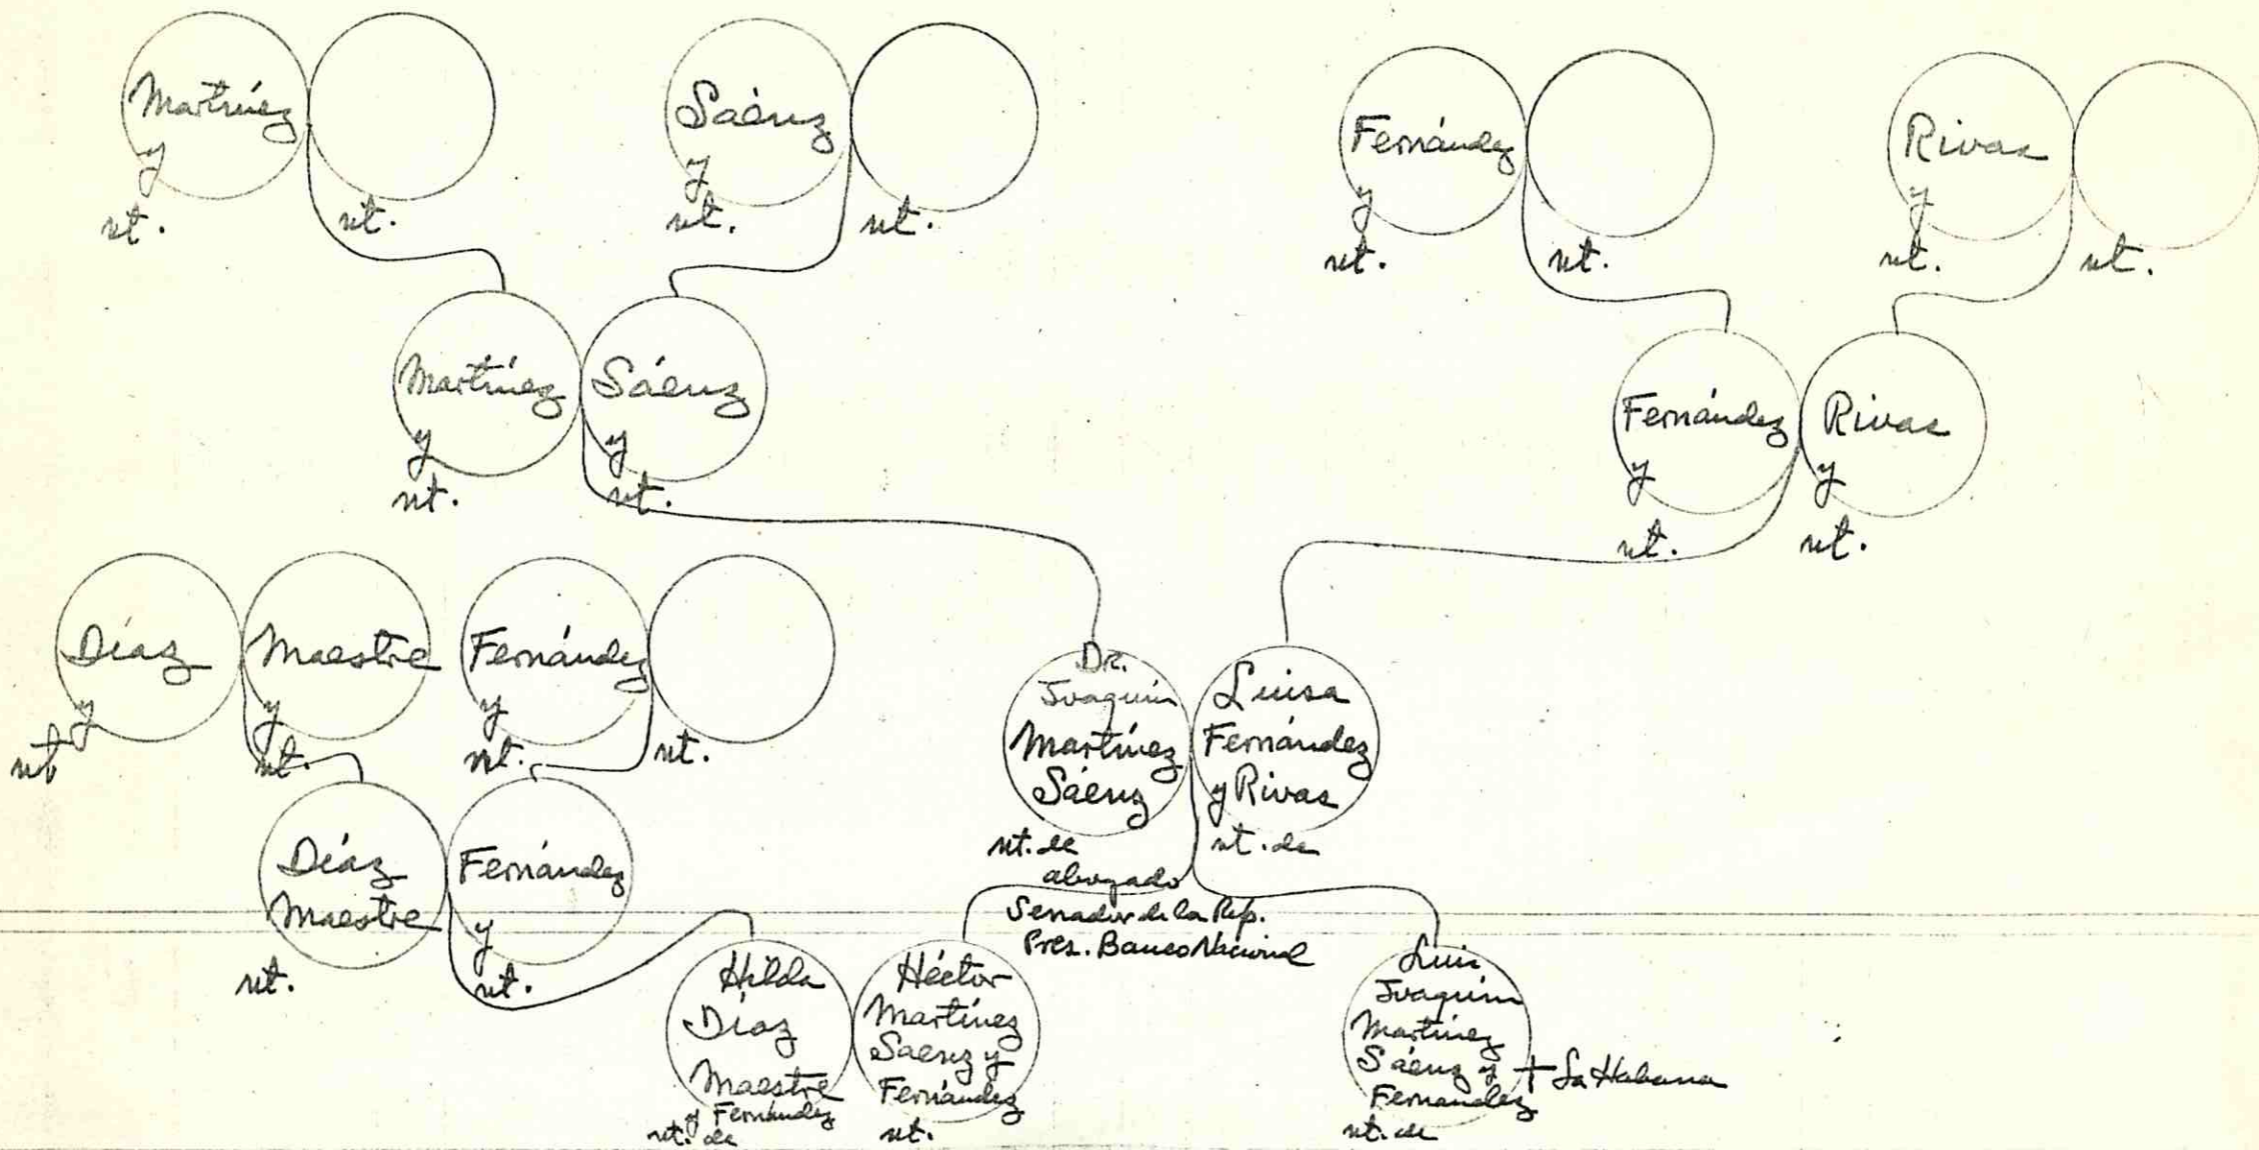 Martínez
y
nt.
nt.
Sáenz
y
nt.
nt.
Fernández
y
nt.
nt.
Rivas
y
nt.
nt.
Martínez
y
nt.
Sáenz
y
nt.
Fernández
y
nt.
Rivas
y
nt.
Díaz
y
nt
Maestre
y
nt.
Fernández
y
nt.
nt.
Dr.
Joaquín
Martínez
Sáenz
nt. de
abogado
Senador de la Rep.
Pres. Banco Nacional
Luisa
Fernández
y Rivas
nt. de
Díaz
Maestre
nt.
Fernández
y
nt.
Hilda
Díaz
Maestre
y Fernández
nt. de
Héctor
Martínez
Saenz y
Fernández
nt.
Luis
Joaquín
Martínez
Sáenz y
Fernandez
nt. de
+ La Habana